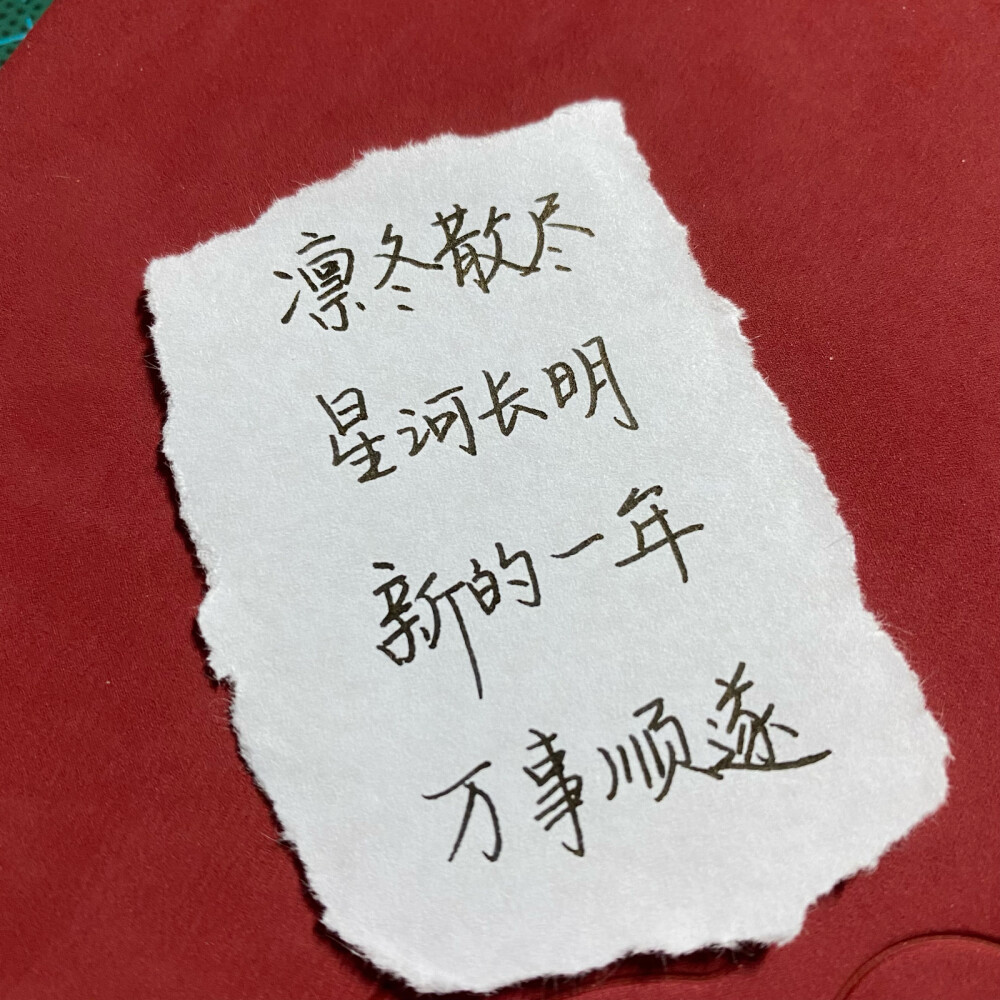 凛冬散尽
星河长明
新的一年
万事顺遂